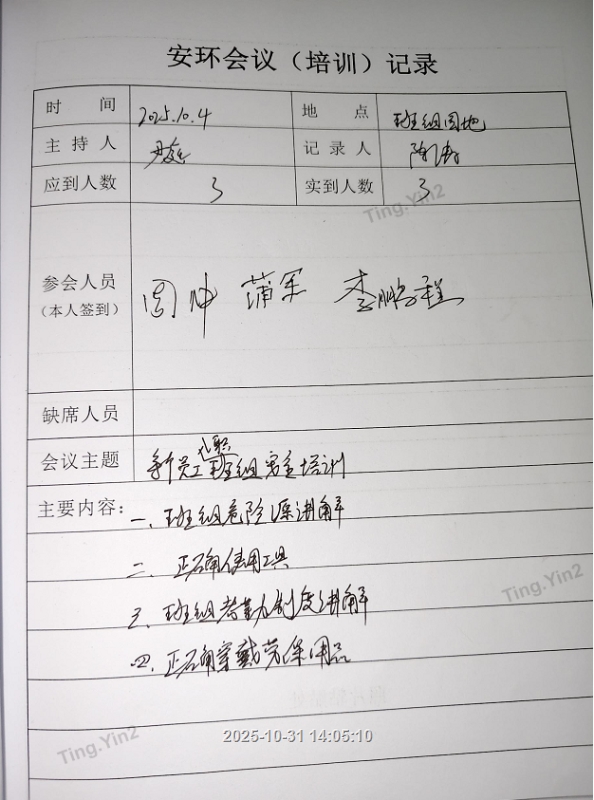 安环会议（培训）记录
时 间 2025.10.4 地 点 班组园地
主 持 人 记 录 人 陈涛
应到人数 3 实到人数 3
Ting.Yin2
参会人员
（本人签到）
周坤 蒲军 李鹏程
缺席人员
会议主题 新员工入职班组安全培训
主要内容：
一、班组危险源讲解
二、正确使用工具
Ting.Yin2
三、班组考勤制度讲解
四、正确穿戴劳保用品
2025-10-31 14:05:10
Ting.Yin2